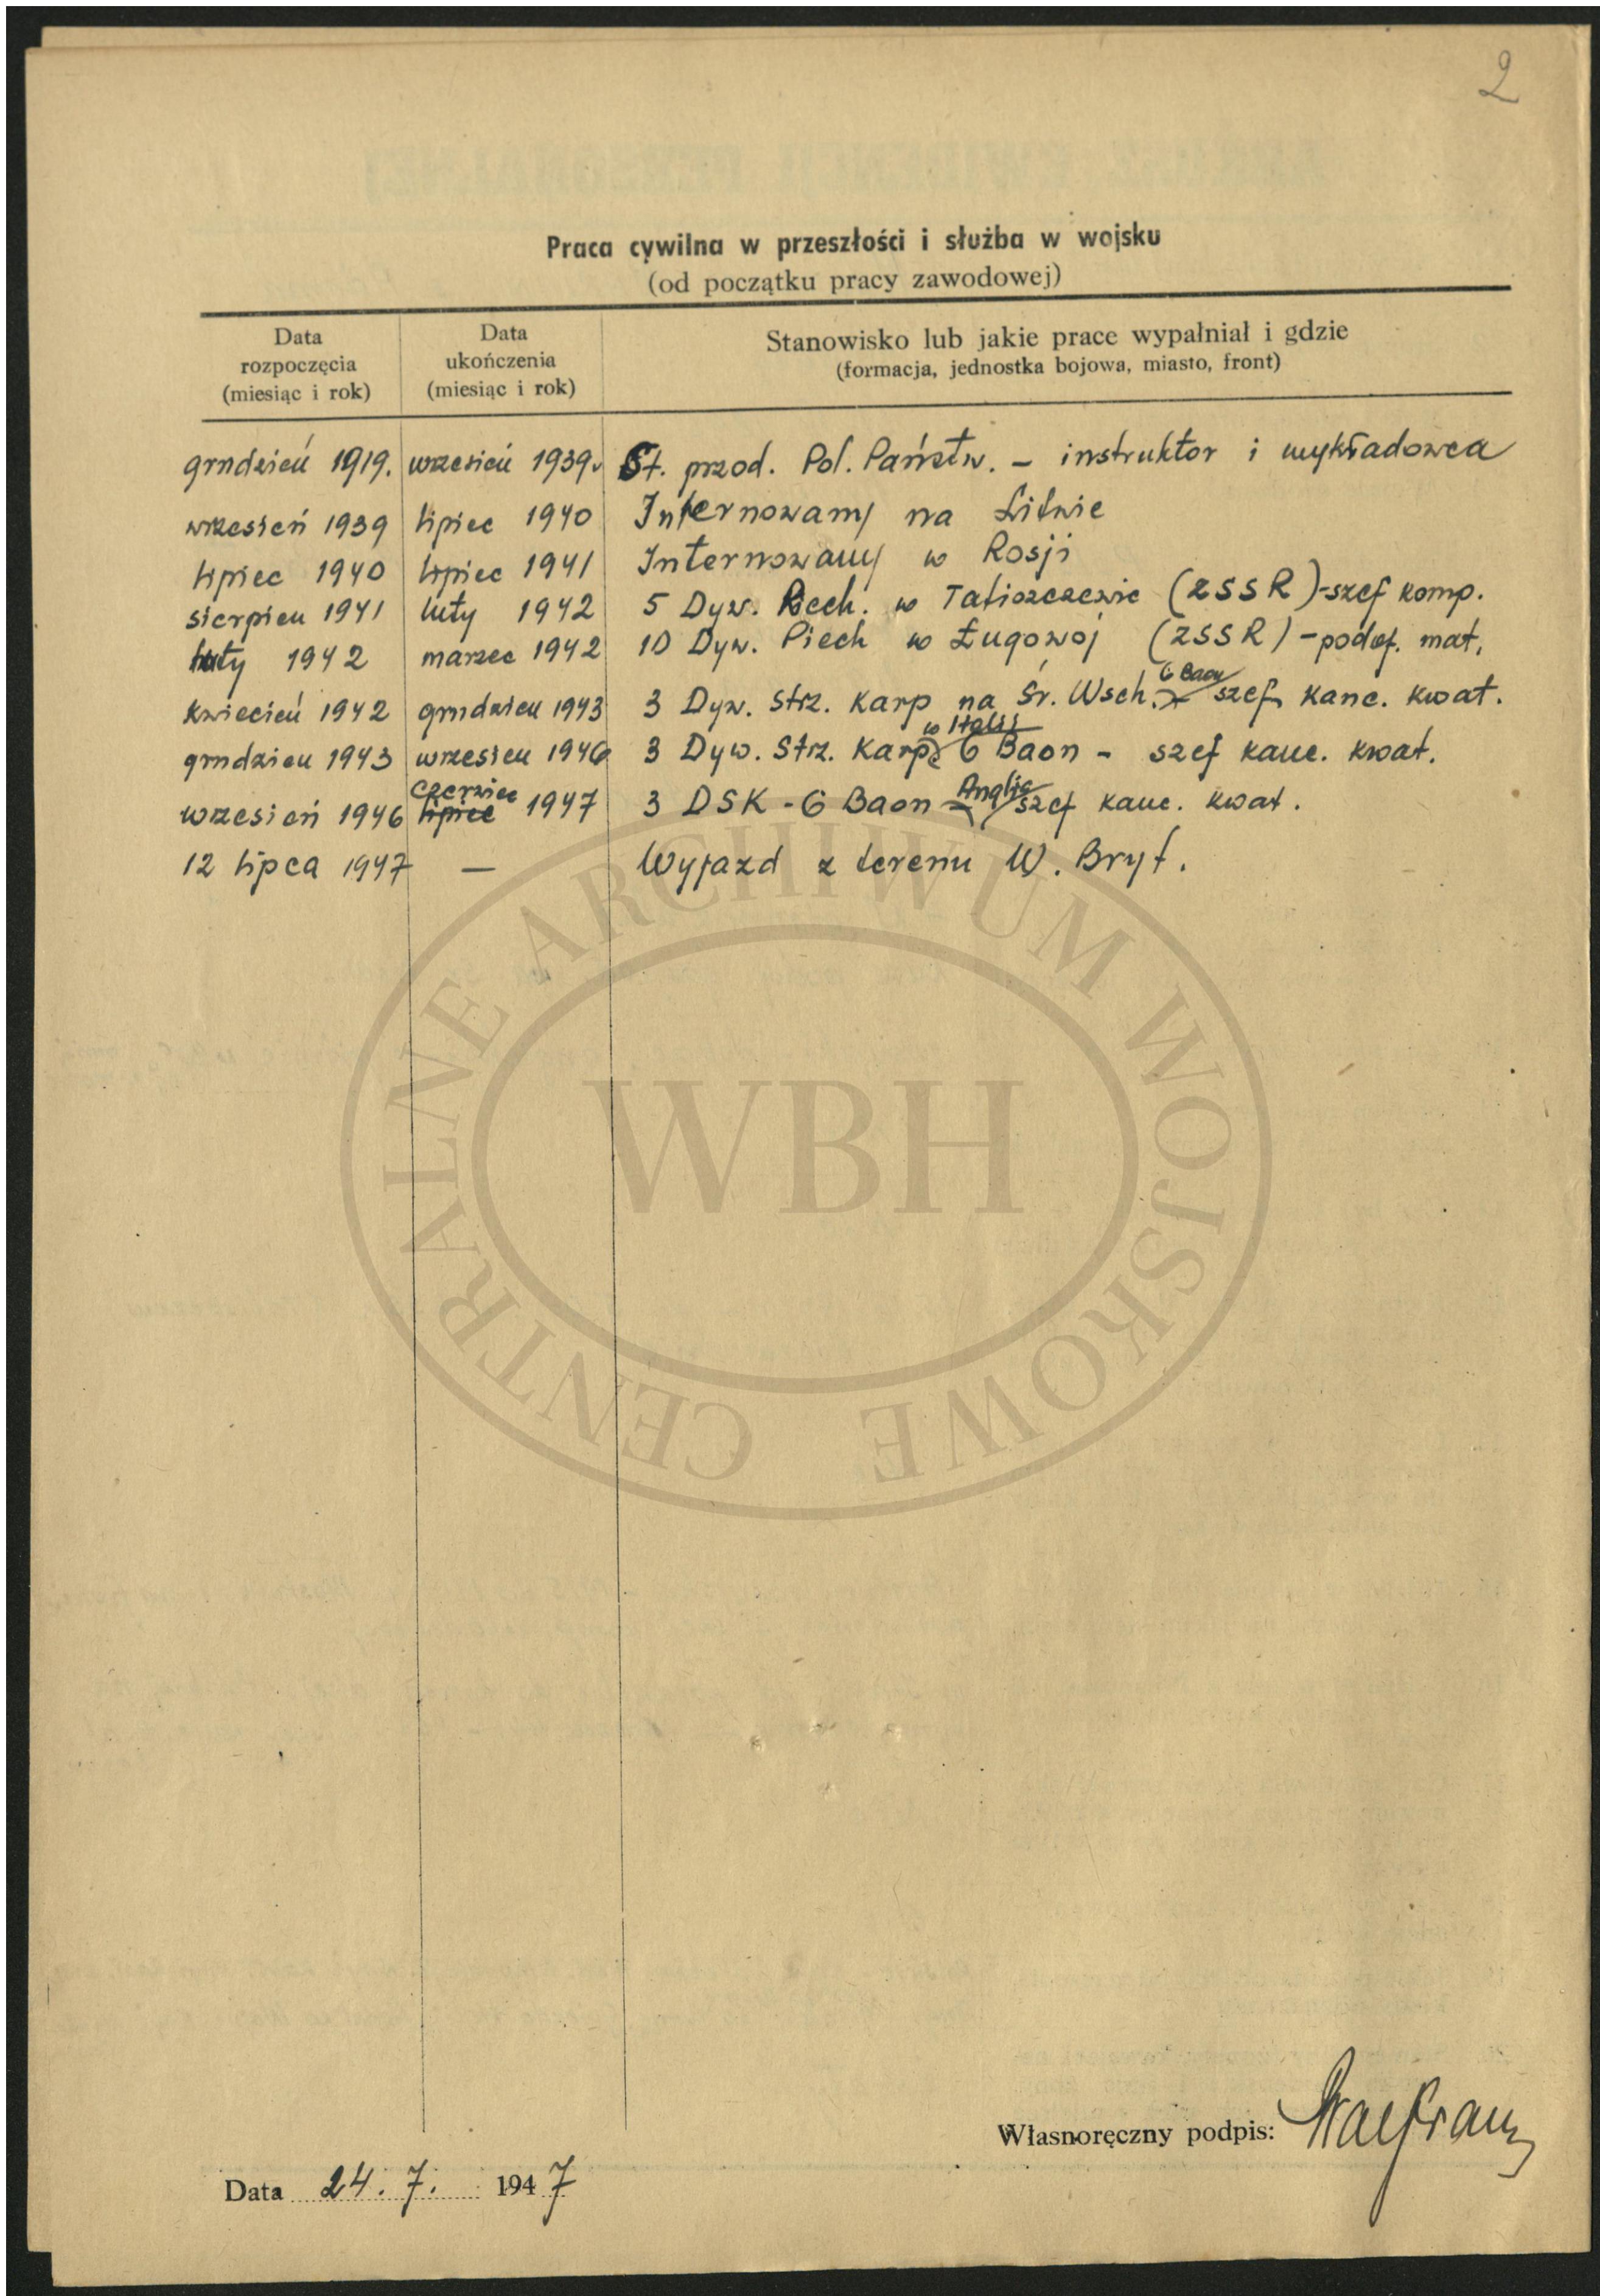 2
Praca cywilna w przeszłości i służba w wojsku
(od początku pracy zawodowej)
Data rozpoczęcia (miesiąc i rok)
Data ukończenia (miesiąc i rok)
Stanowisko lub jakie prace wypałniał i gdzie
(formacja, jednostka bojowa, miasto, front)
grudzień 1919. wrzesień 1939. St. przod. Pol. Państw. - instruktor i wykładowca
wrzesień 1939 lipiec 1940 Internowany na Litwie
lipiec 1940 lipiec 1941 Internowany w Rosji
sierpień 1941 luty 1942 5 Dyw. Piech. w Tatiszczewie (ZSSR) - szef komp.
luty 1942 marzec 1942 10 Dyw. Piech w Ługowoj (ZSSR) - podof. mat.
kwiecień 1942 grudzień 1943 3 Dyw. Strz. Karp na Śr. Wsch. 6 Baon szef kanc. kwat.
grudzień 1943 wrzesień 1946 3 Dyw. Strz. Karp w Italii 6 Baon - szef kanc. kwat.
wrzesień 1946 lipiec czerwiec 1947 3 DSK - 6 Baon - Anglia szef kanc. kwat.
12 lipca 1947 — Wyjazd z terenu W. Bryt.
CENTRALNE ARCHIWUM WOJSKOWE
WBH
Własnoręczny podpis:
Data 24. 7. 1947